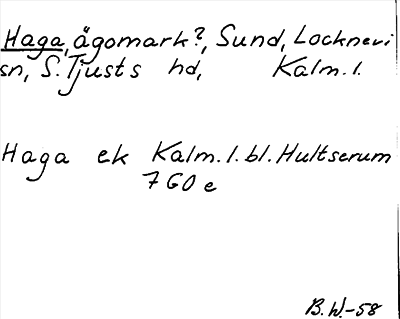 Haga, ägomark?, Sund, Locknevi
sn, S. Tjusts hd, Kalm. l.
Haga ek Kalm. l. bl. Hultserum
7 G0 e
B. W.-58